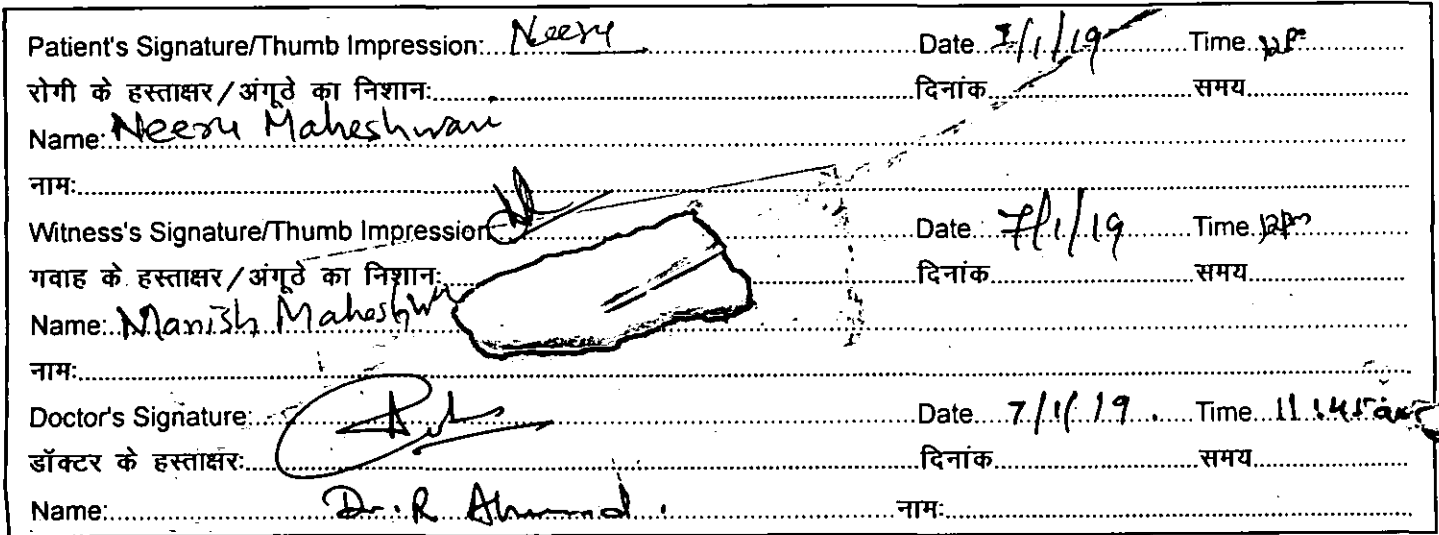 Patient's Signature/Thumb Impression: Neeru Date 7/1/19 Time 12pm
रोगी के हस्ताक्षर/अंगूठे का निशान: दिनांक समय
Name: Neeru Maheshwari
नाम:
Witness's Signature/Thumb Impression Date 7/1/19 Time 12pm
गवाह के हस्ताक्षर/अंगूठे का निशान: दिनांक समय
Name: Manish Maheshwari
नाम:
Doctor's Signature: Date 7/1/19. Time 11:45am
डॉक्टर के हस्ताक्षर: दिनांक समय
Name: Dr. R नाम: